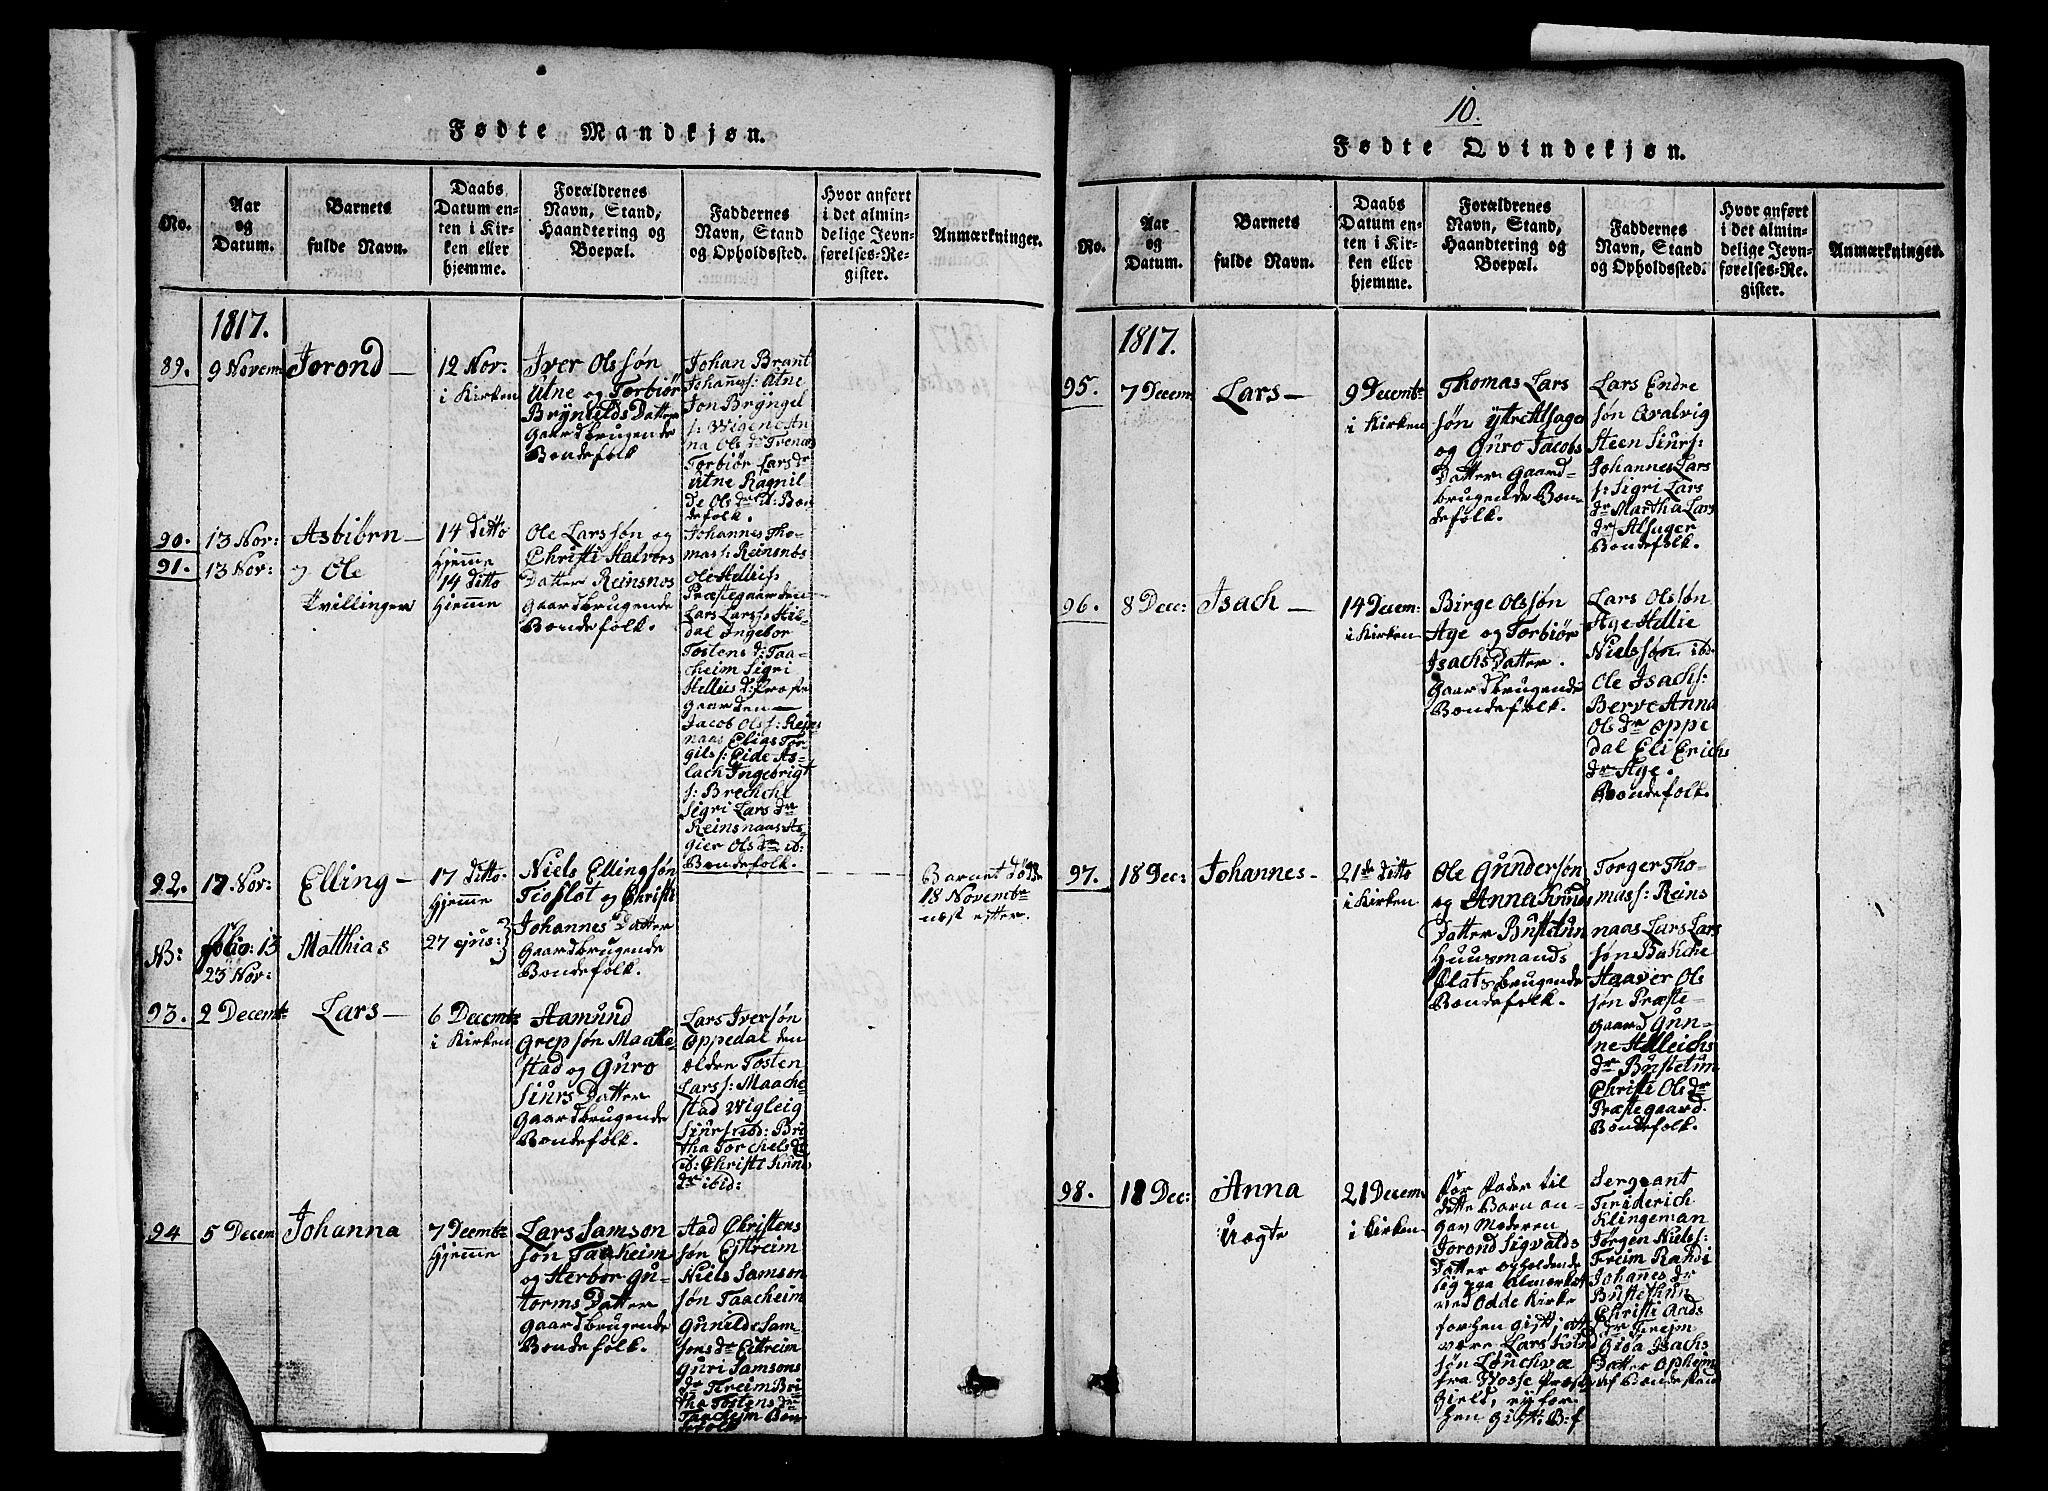 Fødte Mandkjøn.
No.
Aar
og
Datum.
Barnets
fulde Navn.
Daabs
Datum en-
ten i Kir-
ken eller
hjemme.
Forældrenes
Navn, Stand,
Haandtering og
Boepæl.
Faddernes
Navn, Stand
og Opholdssted.
Hvor anført
i det almin-
delige Jevn-
førelses-Re-
gister.
Anmærkninger.
1817.
89.
9 Novem
Jorond
12 Nov:
i Kirken
Iver Olssøn
Utne og Torbiør
Brynilds Datter
Gaardbrugende
Bondefolk
Johan Brant
Johañes s: Utne
Jon Bryngel
s: Wigene An-
na Ols dr Trenes
Torbiør Lars dr
Utne Ragnil
de Ols dr it: Bon
defolk.
90.
91.
13 Nov:
13 Nov:
Asbiørn
og Ole
Tvillinger
14 Ditto
Hjemme
14 Ditto
Hjemme
Ole Larssøn og
Christi Halvors
Datter Reinsnos
Gaardbrugende
Bondefolk.
Johannes Tho-
mas s: Reinsnos
Ole Hellies s:
Præstegaarden
Lars Lars s: Hil-
dal Ingebor
Tostens d: Taa-
cheim Sigri
Hellies d: Præste
gaarden
Jacob Ols s: Reins
naas Elias Tor-
gils s: Eide As-
lach Ingebrigt
s: Brechche
Sigri Lars dr
Reinsnaas As-
gier Ols dr ib:
Bondefolk.
92.
17 Nov:
Elling
17 Ditto
Hjemme
Niels Ellingsøn
Tioflot og Christi
Johannes Datter
Gaardbrugende
Bondefolk.
Barnet døde
18 Novembr
næst efter.
NB:
folio: 13
23 Nov:
Matthias
27 ejus:
93.
2 Decembr
Lars
6 Decembr
i Kirken
Aamund
Grepsøn Maake-
stad og Guro
Siurs Datter
Gaardbrugende
Bondefolk.
Lars Iversøn
Oppedal den
ældre Tosten
Lars s: Maache
stad Wigleig
Siurs s: ib: Bri
tha Torchels dr
ib: Christi Knus
dr ibid:
94
5 Decem
Johanna
7 Decembr
Hjemme
Lars Samson
søn Taakeim
og Herbor Gu-
torms Datter
Gaardbrugende
Bondefolk.
Aad Christens
søn Eitreim
Niels Samson
søn Taacheim
Gunilde Sam-
sons dr Eitreim
Guri Samsons
dr Freim Bri
tha Tostens dr
Taacheim Bon
defolk
10.
Fødte Qvindekjøn.
No.
Aar
og
Datum.
Barnets
fulde Navn.
Daabs
Datum en-
ten i Kir-
ken eller
hjemme.
Forældrenes
Navn, Stand,
Haandtering og
Boepæl.
Faddernes
Navn, Stand
og Opholdssted.
Hvor anført
i det almin-
delige Jevn-
førelses-Re-
gister.
Anmærkninger.
1817.
95.
7 Decem
Lars
9 Decembr
i Kirken
Thomas Lars
søn Ytre Alsager
og Guro Jacobs
Datter Gaard-
brugende Bon
defolk.
Lars Endre
søn Qvalvig
Steen Siurs s:
Johannes Lars
s: Sigri Lars
dr Martha Lars
dr Alsager
Bondefolk.
96.
8 Dec:
Isach
14 Decem:
i Kirken
Birge Olssøn
Age og Torbiør
Isachs Datter.
Gaardbrugende
Bondefolk.
Lars Olssøn
Age Hellie
Nielssøn ibd.
Ole Isachs:
Berve Anna
Ols dr Oppe
dal Eli Erichs
dr Age.
Bondefolk.
97.
18 Dec:
Johannes
21 de ditto
i Kirken
Ole Gundersøn
og Anna Knuds
Datter Bustetun
Huusmands
Plats brugende
Bondefolk.
Torger Tho-
mas s: Reins
naas Lars Lars
søn Bakche
Haaver Ols
søn Præste-
gaard Gun-
ne Helleichs
dr Bustetun
Christi Ols dr
Præstegaard.
Bondefolk.
98.
18 Dec:
Anna
Uægte
21 Decem
i Kirken
For Fader til
dette Barn an-
gav Moderen
Jorond Sigvalds
Datter opholdende
sig paa Almerket
ved Odde Kirke
forhen gift, at
være Lars Knud
søn Lønchvæ
fra Vosse Præste
Gield, ey for
hen gift. B: f
Sergeant
Friderich
Klingeman
Jørgen Niels s:
Freim Randi
Johañes dr
Bustethun
Christi Aads
dr Freim
Giøa Isachs
Datter Opheim
af Bondestand